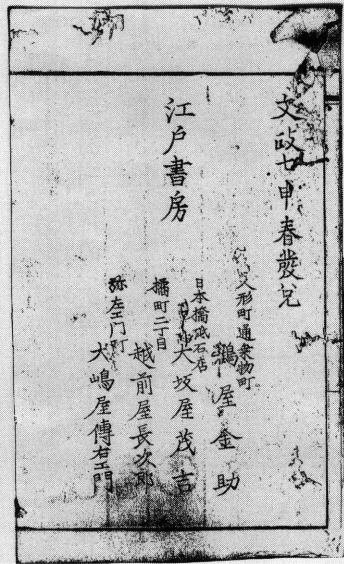 文政七申春發兌
江戸書房
人形町通乗物町
鶴屋金助
日本橋砥石店
大坂屋茂吉
橘町二丁目
越前屋長次郎
弥左エ門町
大嶋屋傳右エ門